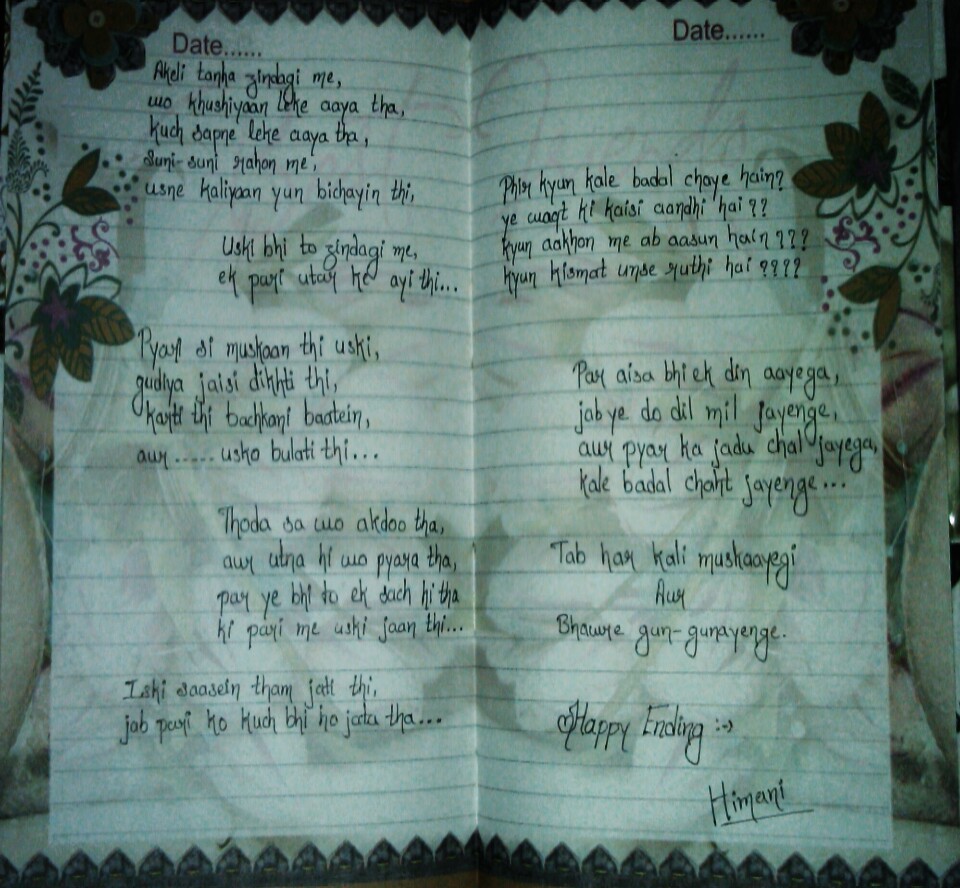 Date......
Akeli tanha zindagi me,
wo khushiyaan leke aaya tha,
kuch sapne leke aaya tha,
suni-suni rahon me,
usne kaliyaan yun bichayin thi,
Uski bhi to zindagi me,
ek pari utar ke ayi thi...
Pyari si muskaan thi uski,
gudiya jaisi dikhti thi,
karti thi bachkani baatein,
aur ..... usko bulati thi...
Thoda sa wo akdoo tha,
aur utna hi wo pyara tha,
par ye bhi to ek sach hi tha
ki pari me uski jaan thi...
Iski saasein tham jati thi,
jab pari ko kuch bhi ho jata tha...
Date......
Phir kyun kale badal chaye hain?
ye waqt ki kaisi aandhi hai??
kyun aakhon me ab aasun hain???
kyun kismat unse ruthi hai????
Par aisa bhi ek din aayega,
jab ye do dil mil jayenge,
aur pyar ka jadu chal jayega,
kale badal chaht jayenge...
Tab har kali muskaayegi
Aur
Bhawre gun-gunayenge.
Happy Ending :->
Himani